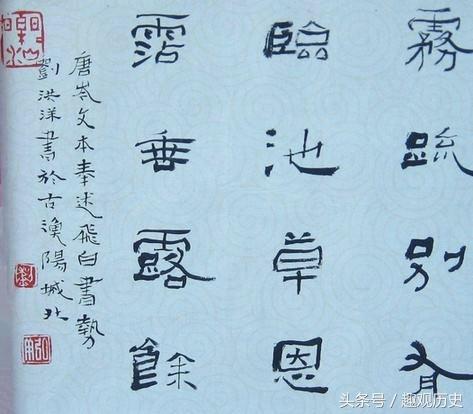 霧疏別有
臨池草恩
霑垂露餘
唐岑文本奉述飛白書勢
劉洪洋書於古漁陽城北
劉
头条号 / 趣观历史